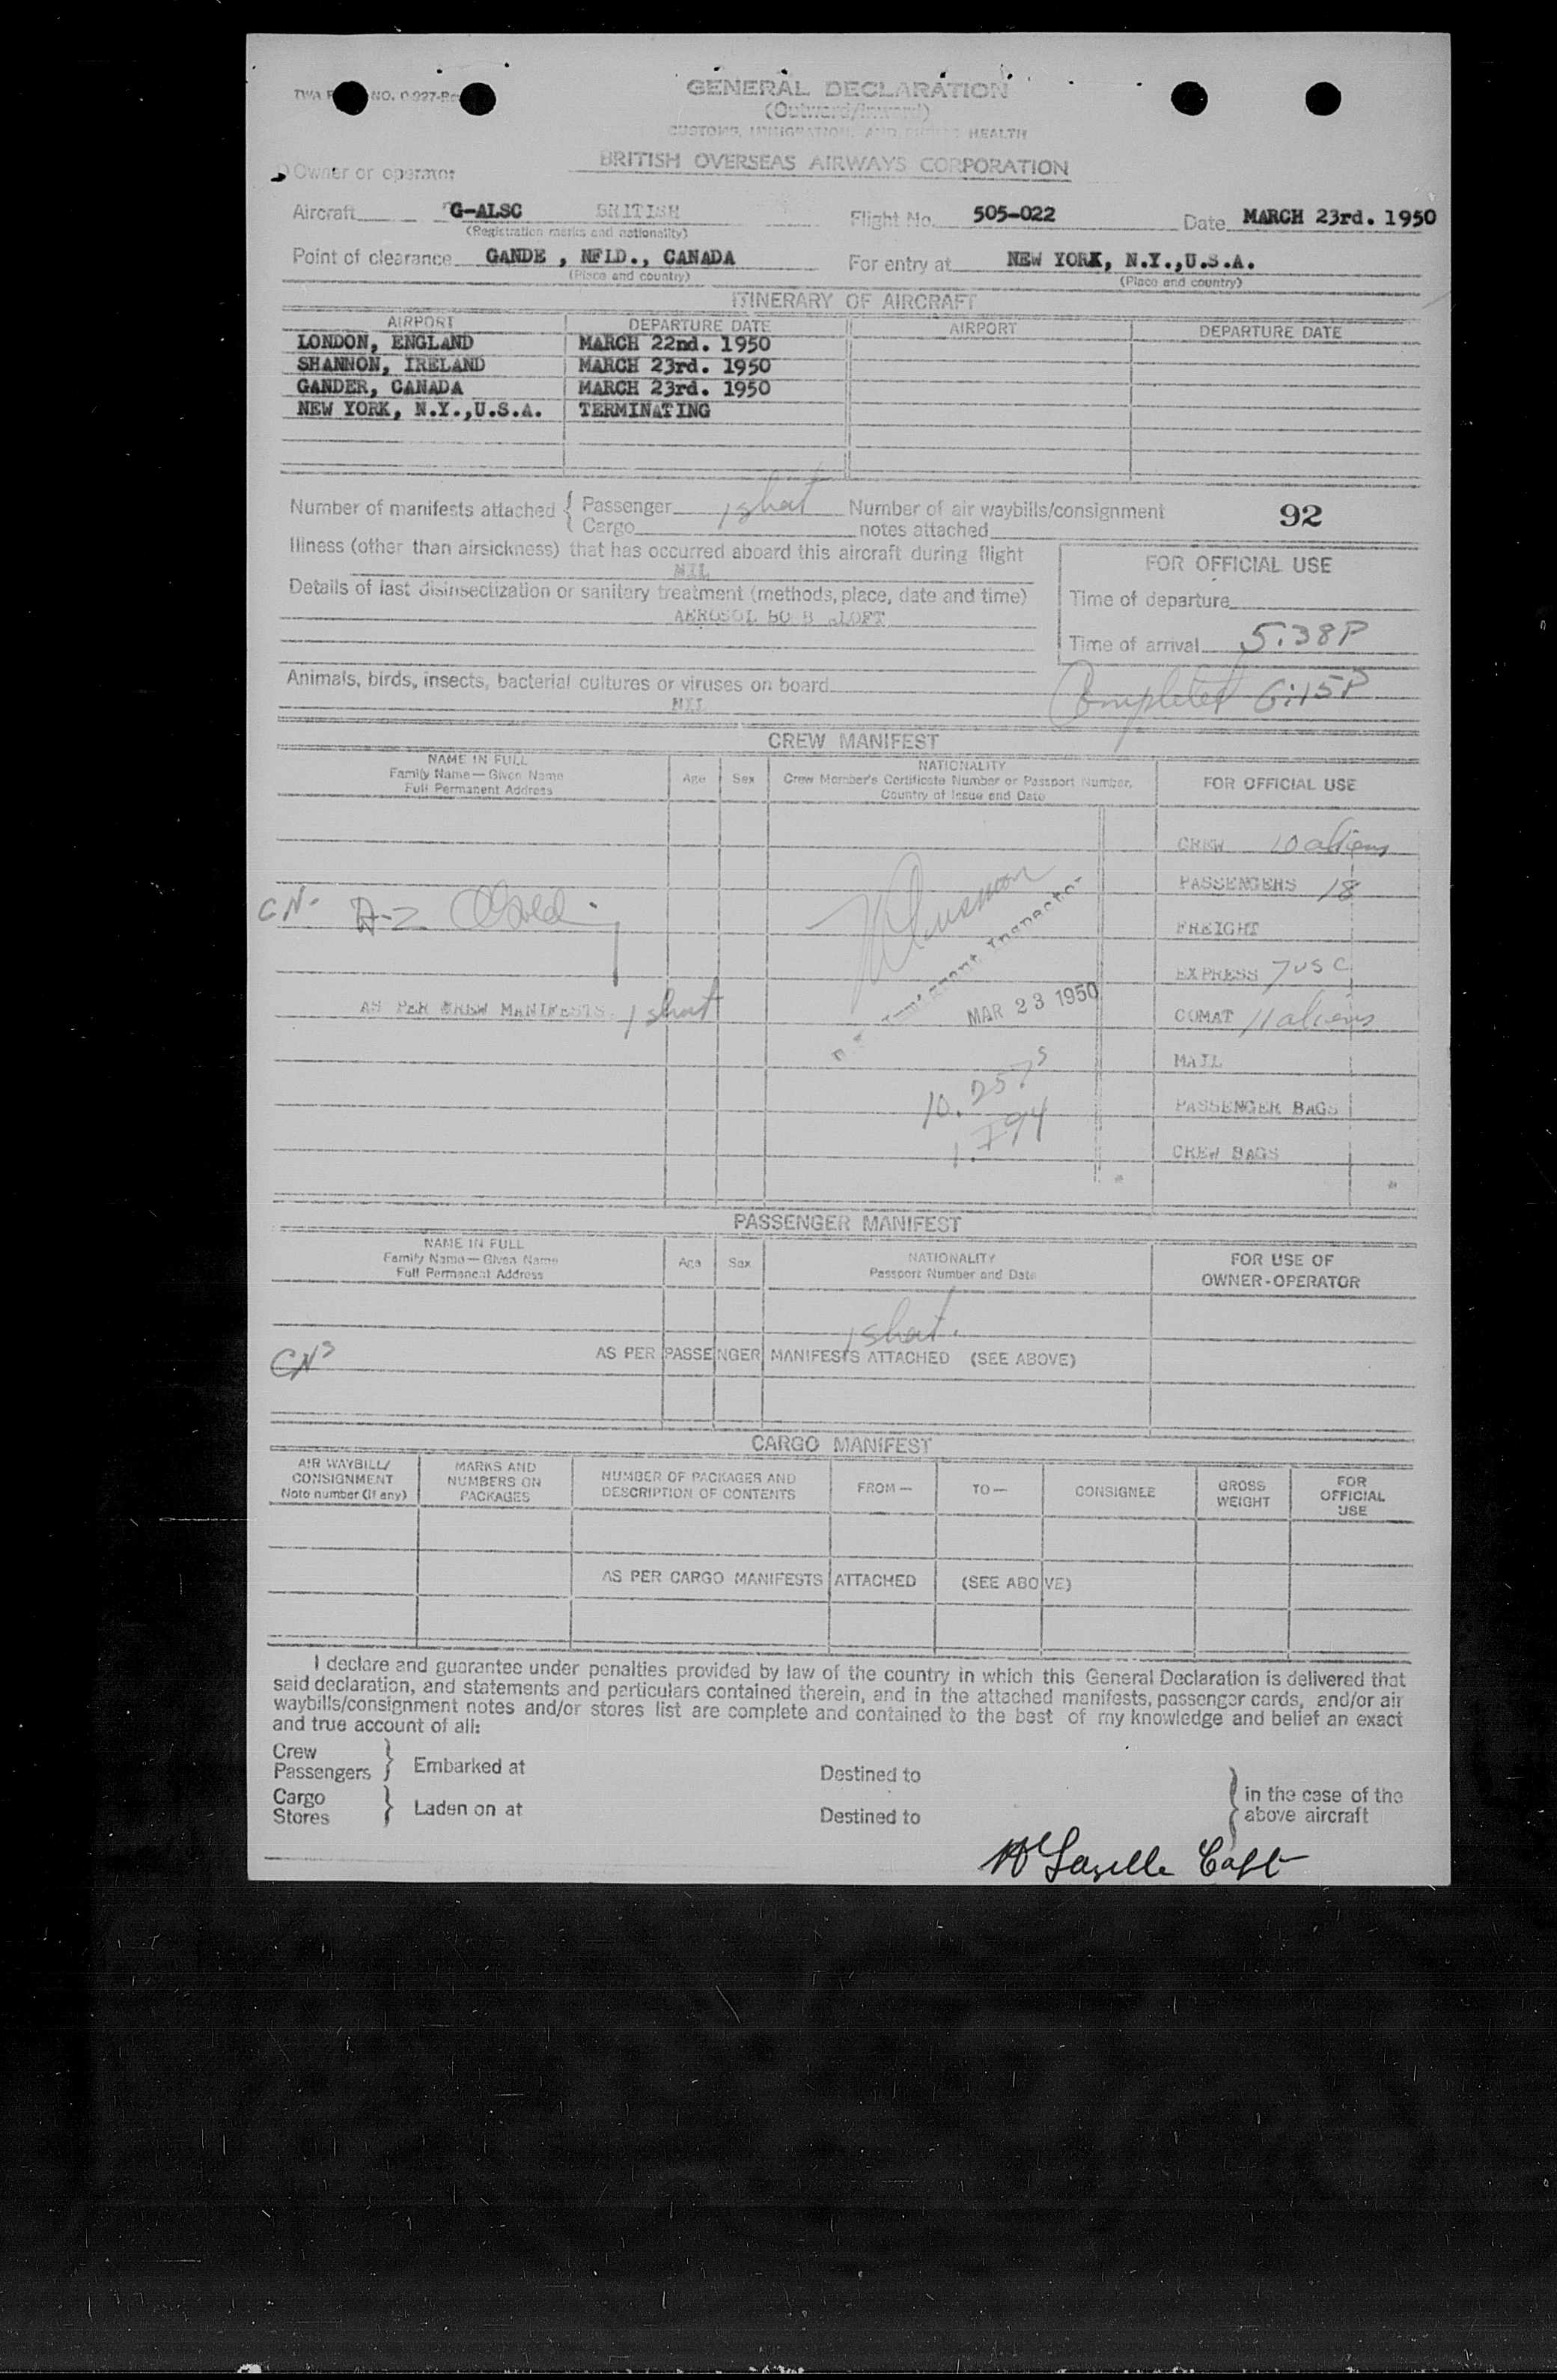 GENERAL DECLARATION
(Outward/Inward)
CUSTOMS, IMMIGRATION, AND PUBLIC HEALTH
TWA NO.
Owner or operator BRITISH OVERSEAS AIRWAYS CORPORATION
Aircraft G-ALSC BRITISH Flight No. 505-022 Date MARCH 23rd. 1950
(Registration marks and nationality)
Point of clearance GANDE , NFLD., CANADA For entry at NEW YORK, N.Y.,U.S.A.
(Place and country) (Place and country)
ITINERARY OF AIRCRAFT
AIRPORT DEPARTURE DATE AIRPORT DEPARTURE DATE
LONDON, ENGLAND MARCH 22nd. 1950
SHANNON, IRELAND MARCH 23rd. 1950
GANDER, CANADA MARCH 23rd. 1950
NEW YORK, N.Y.,U.S.A. TERMINATING
Number of manifests attached { Passenger 1 sheet Number of air waybills/consignment 92
Cargo notes attached
Illness (other than airsickness) that has occurred aboard this aircraft during flight FOR OFFICIAL USE
NIL
Details of last disinsectization or sanitary treatment (methods, place, date and time) Time of departure
AEROSOL BO B ALOFT
Time of arrival 5:38P
Animals, birds, insects, bacterial cultures or viruses on board Completed 6:15P
NIL
CREW MANIFEST
NAME IN FULL
Family Name—Given Name
Full Permanent Address
Age Sex
NATIONALITY
Crew Member's Certificate Number or Passport Number,
Country of Issue and Date
FOR OFFICIAL USE
CREW 10 aliens
PASSENGERS 18
CN- A-Z
FREIGHT
Immigrant Inspector
EXPRESS 7 USC
AS PER CREW MANIFESTS 1 sheet MAR 23 1950 COMAT 11 aliens
MAIL
10. 257s
PASSENGER BAGS
1. I94
CREW BAGS
PASSENGER MANIFEST
NAME IN FULL
Family Name—Given Name
Full Permanent Address
Age Sex
NATIONALITY
Passport Number and Date
FOR USE OF
OWNER-OPERATOR
1 sheet.
CNs AS PER PASSENGER MANIFESTS ATTACHED (SEE ABOVE)
CARGO MANIFEST
AIR WAYBILL/
CONSIGNMENT
Note number (if any)
MARKS AND
NUMBERS ON
PACKAGES
NUMBER OF PACKAGES AND
DESCRIPTION OF CONTENTS
FROM— TO— CONSIGNEE
GROSS
WEIGHT
FOR
OFFICIAL
USE
AS PER CARGO MANIFESTS ATTACHED (SEE ABOVE)
I declare and guarantee under penalties provided by law of the country in which this General Declaration is delivered that
said declaration, and statements and particulars contained therein, and in the attached manifests, passenger cards, and/or air
waybills/consignment notes and/or stores list are complete and contained to the best of my knowledge and belief an exact
and true account of all:
Crew
Passengers } Embarked at Destined to
Cargo
Stores } Laden on at Destined to
} in the case of the
above aircraft
Capt